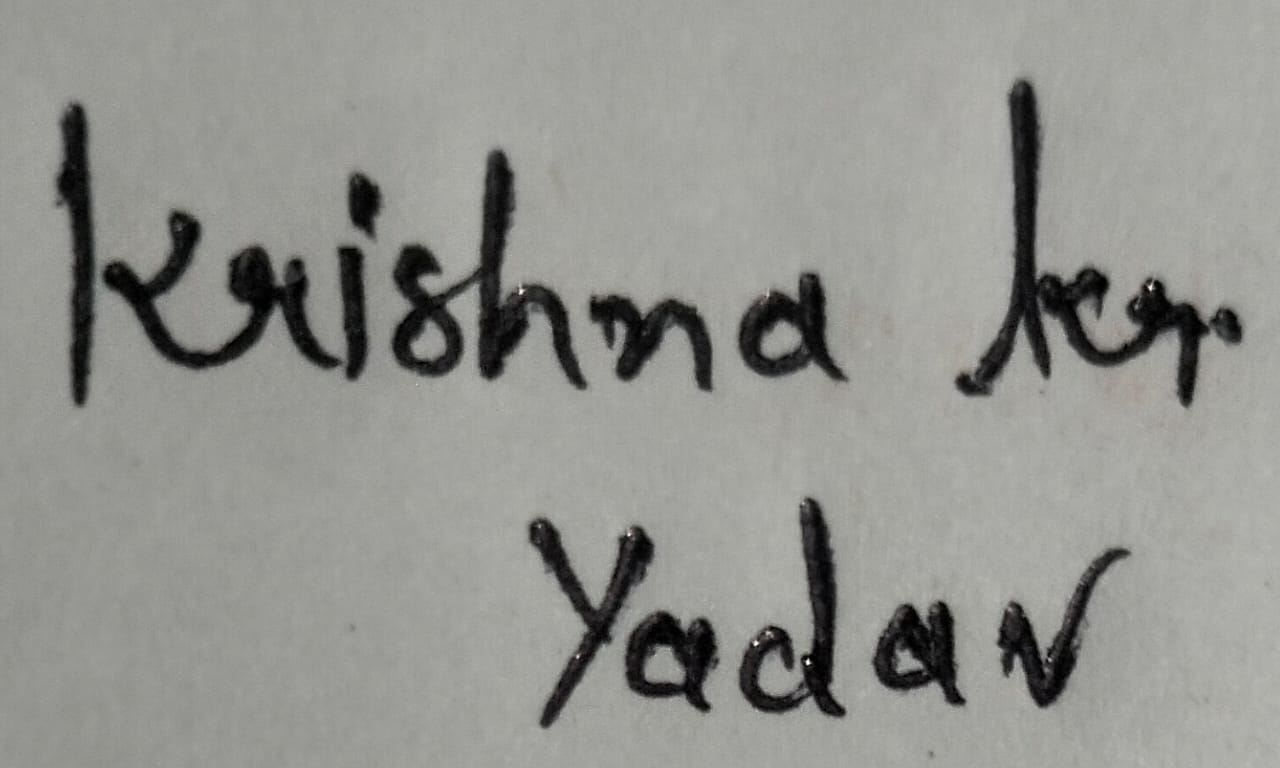 Krishna kr.
Yadav